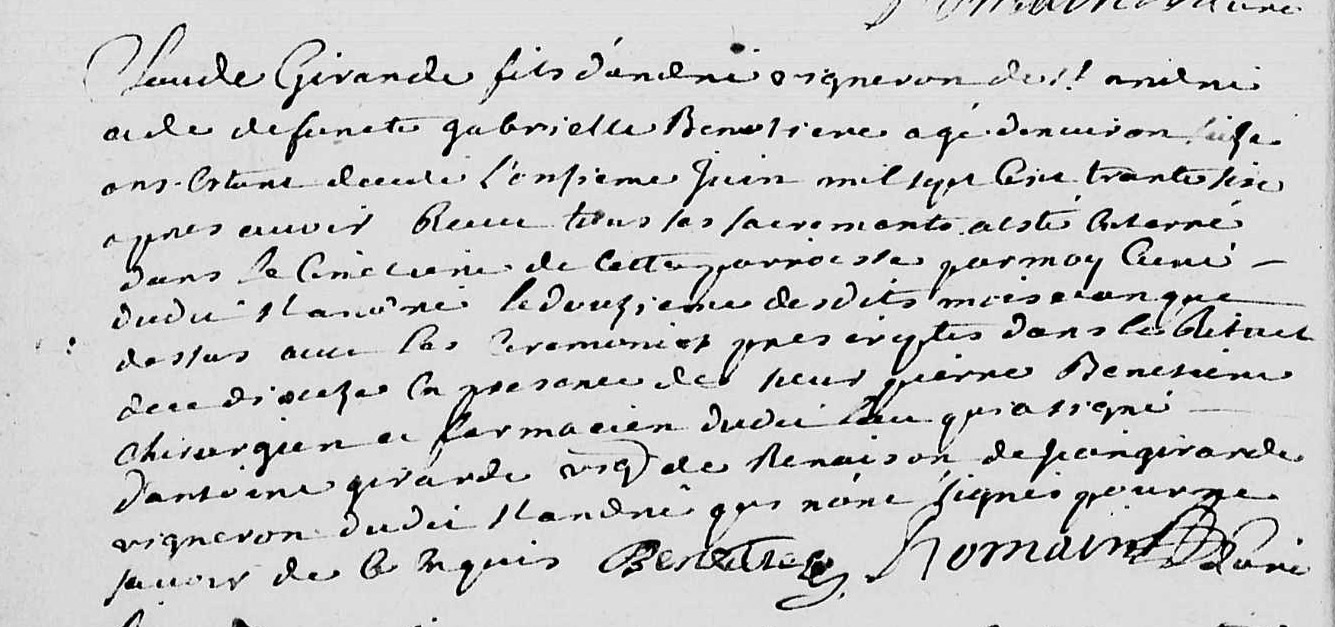 Claude Girande fils d'andré vigneron de st. andré
et de defuncte gabrielle Benetiere agé denuiron seize
ans Estant decedé l'onsieme Juin mil sept Cent trante six
apres auoir Receu tous les sacrements at esté Enterré
dans le Cimetiere de Cette parroisse par moy Curé
dudit st andré le douzieme desdits mois et an que
dessus auec les Ceremonies prescriptes dans le Rituel
de ce dioceze En presence de sieur pierre Benetiere
chirurgien et farmacien dudit lieu qui a signé
d'antoine girande vig de Renaison de jean girande
vigneron dudit st andré qui n'ont signés pour ne
sauoir de ce Enquis Benetiere Romain Curé